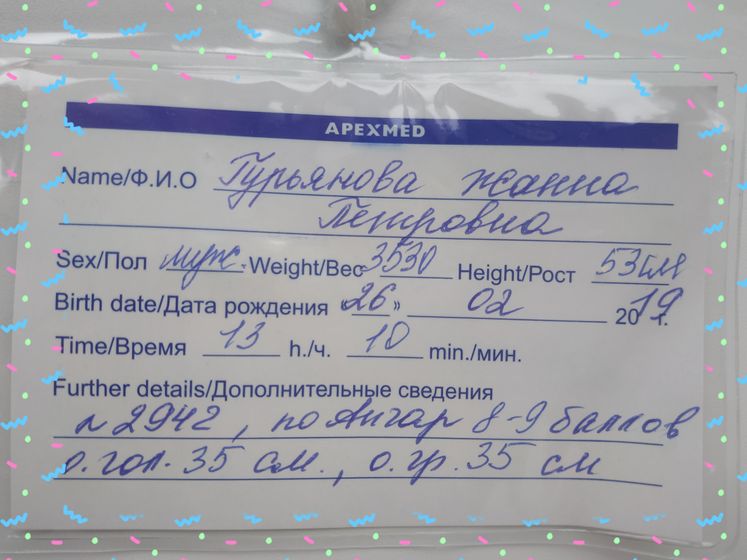 APEXMED
Name/Ф.И.О Гурьянова Жанна
Петровна
Sex/Пол муж. Weight/Вес 3530 Height/Рост 53см
Birth date/Дата рождения «26» 02 2019 г.
Time/Время 13 h./ч. 10 min./мин.
Further details/Дополнительные сведения
л 2942, по Апгар 8-9 баллов
о.гол. 35 см., о.гр. 35 см